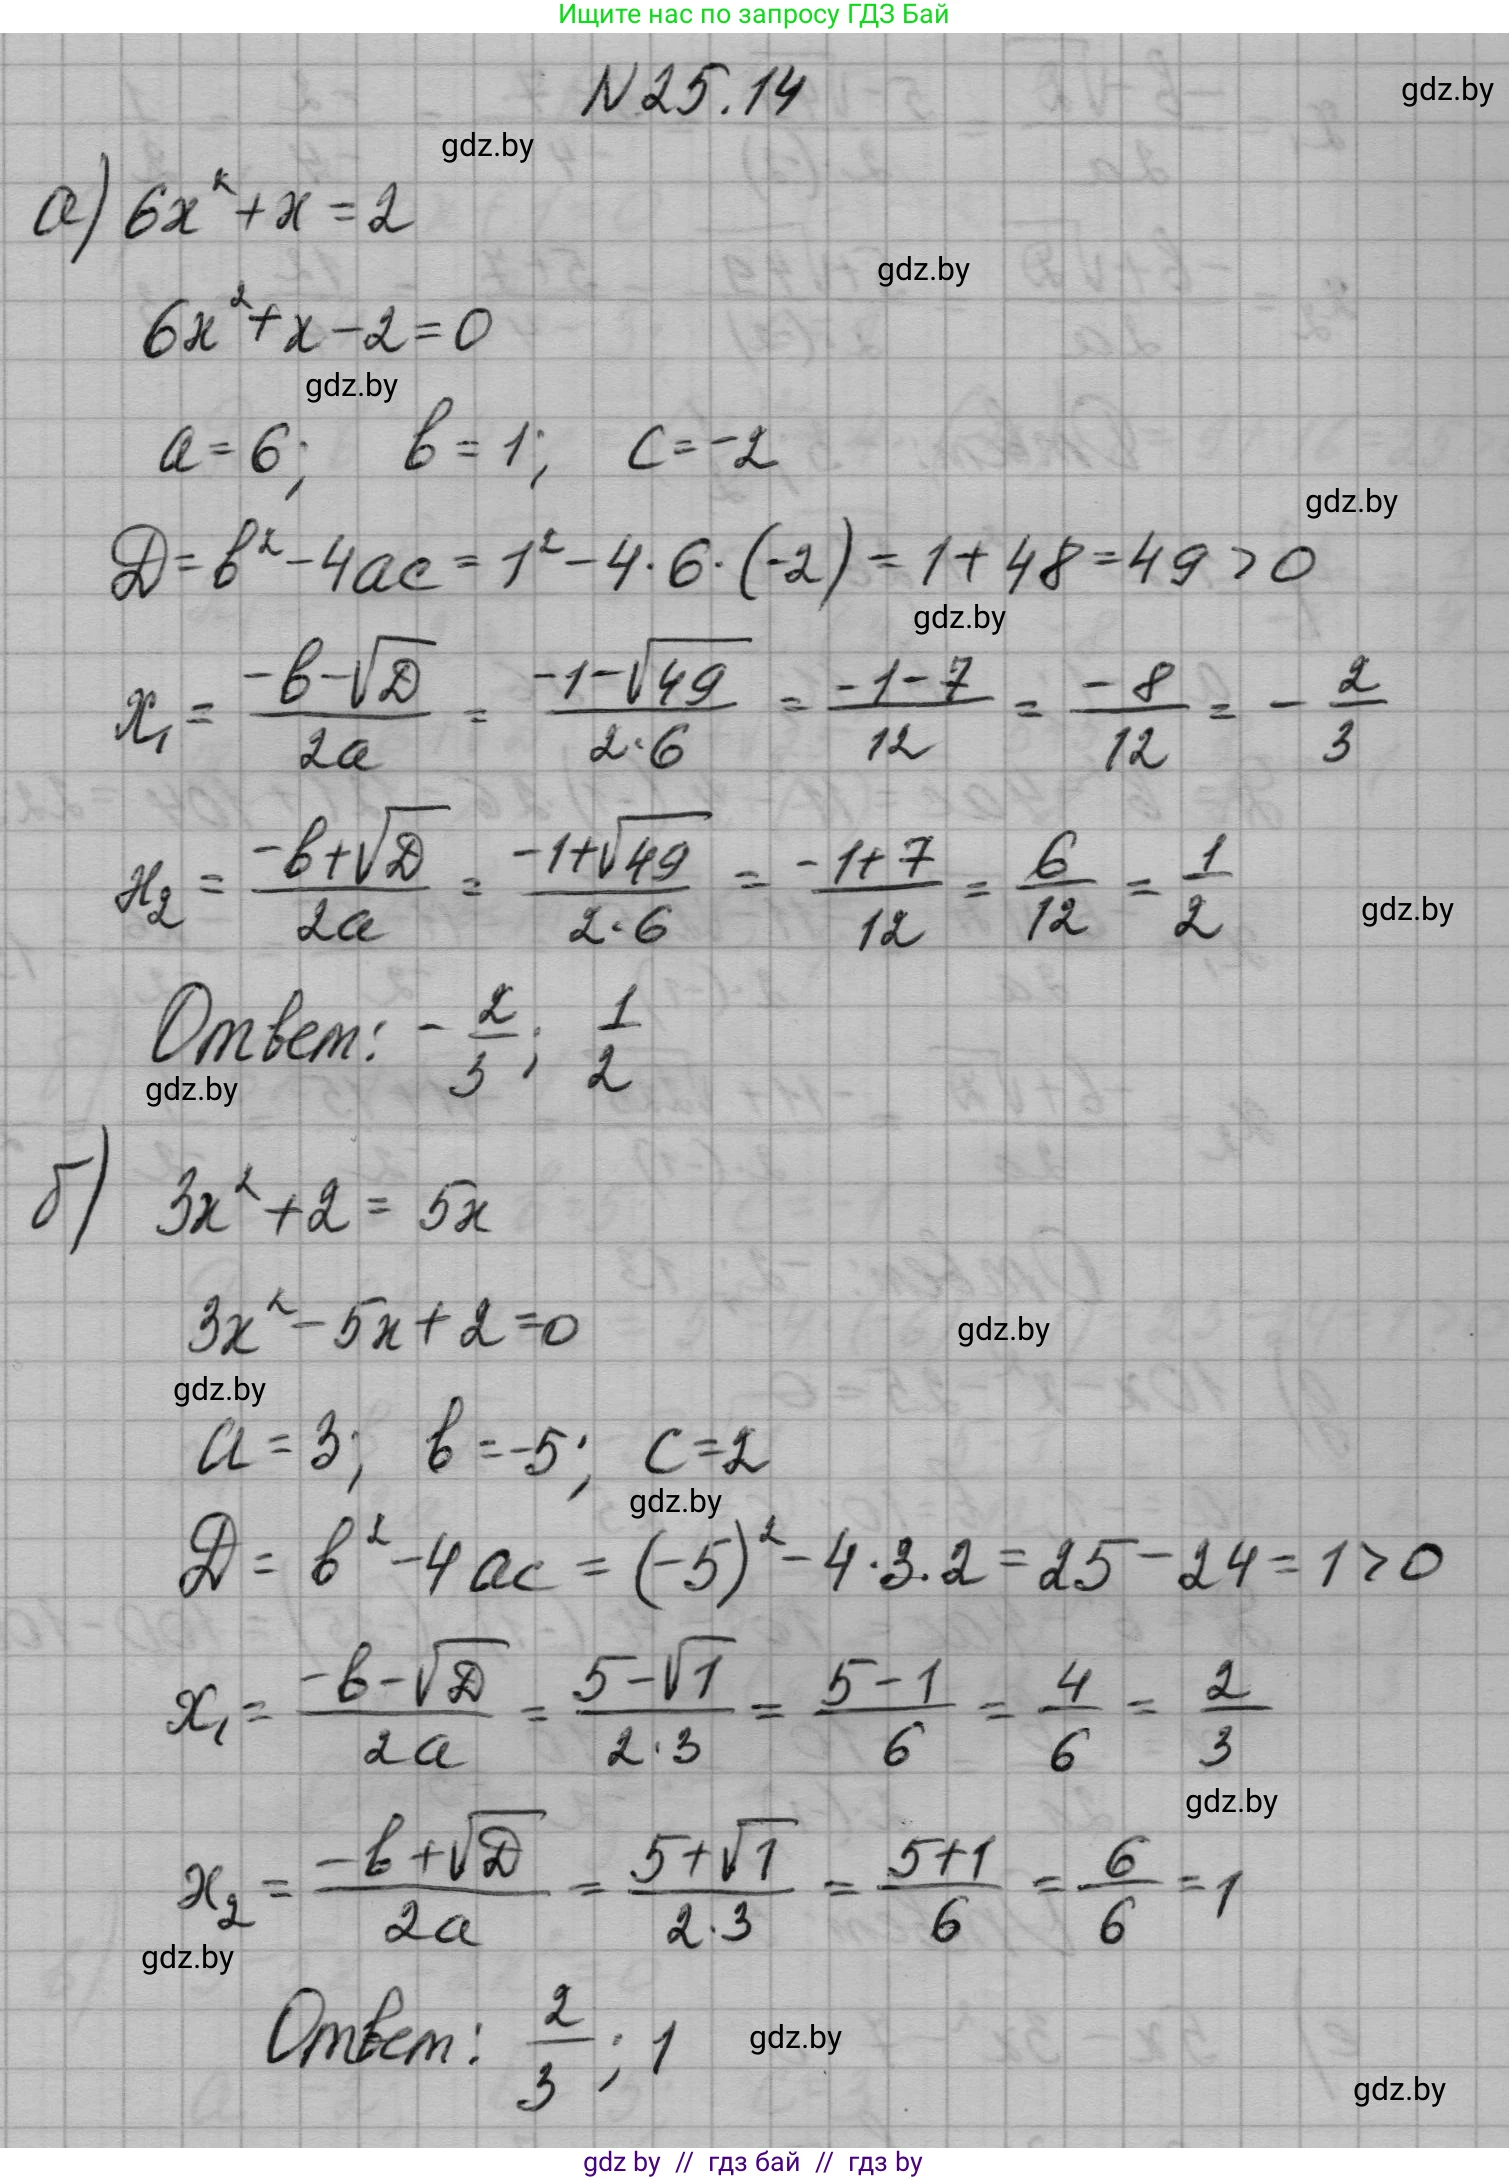 Ищите нас по запросу ГДЗ Бай
N 25.14
gdz.by
gdz.by
а) 6x² + x = 2
gdz.by
6x² + x - 2 = 0
gdz.by
a = 6; b = 1; c = -2
gdz.by
D = b² - 4ac = 1² - 4·6·(-2) = 1 + 48 = 49 > 0
gdz.by
x₁ = (-b-√D)/(2a) = (-1-√49)/(2·6) = (-1-7)/12 = (-8)/12 = -2/3
x₂ = (-b+√D)/(2a) = (-1+√49)/(2·6) = (-1+7)/12 = 6/12 = 1/2
gdz.by
Ответ: -2/3; 1/2
gdz.by
б) 3x² + 2 = 5x
3x² - 5x + 2 = 0
gdz.by
gdz.by
a = 3; b = -5; c = 2
gdz.by
D = b² - 4ac = (-5)² - 4·3·2 = 25 - 24 = 1 > 0
x₁ = (-b-√D)/(2a) = (5-√1)/(2·3) = (5-1)/6 = 4/6 = 2/3
gdz.by
x₂ = (-b+√D)/(2a) = (5+√1)/(2·3) = (5+1)/6 = 6/6 = 1
gdz.by
Ответ: 2/3; 1
gdz.by
gdz.by
gdz by // гдз бай // gdz by